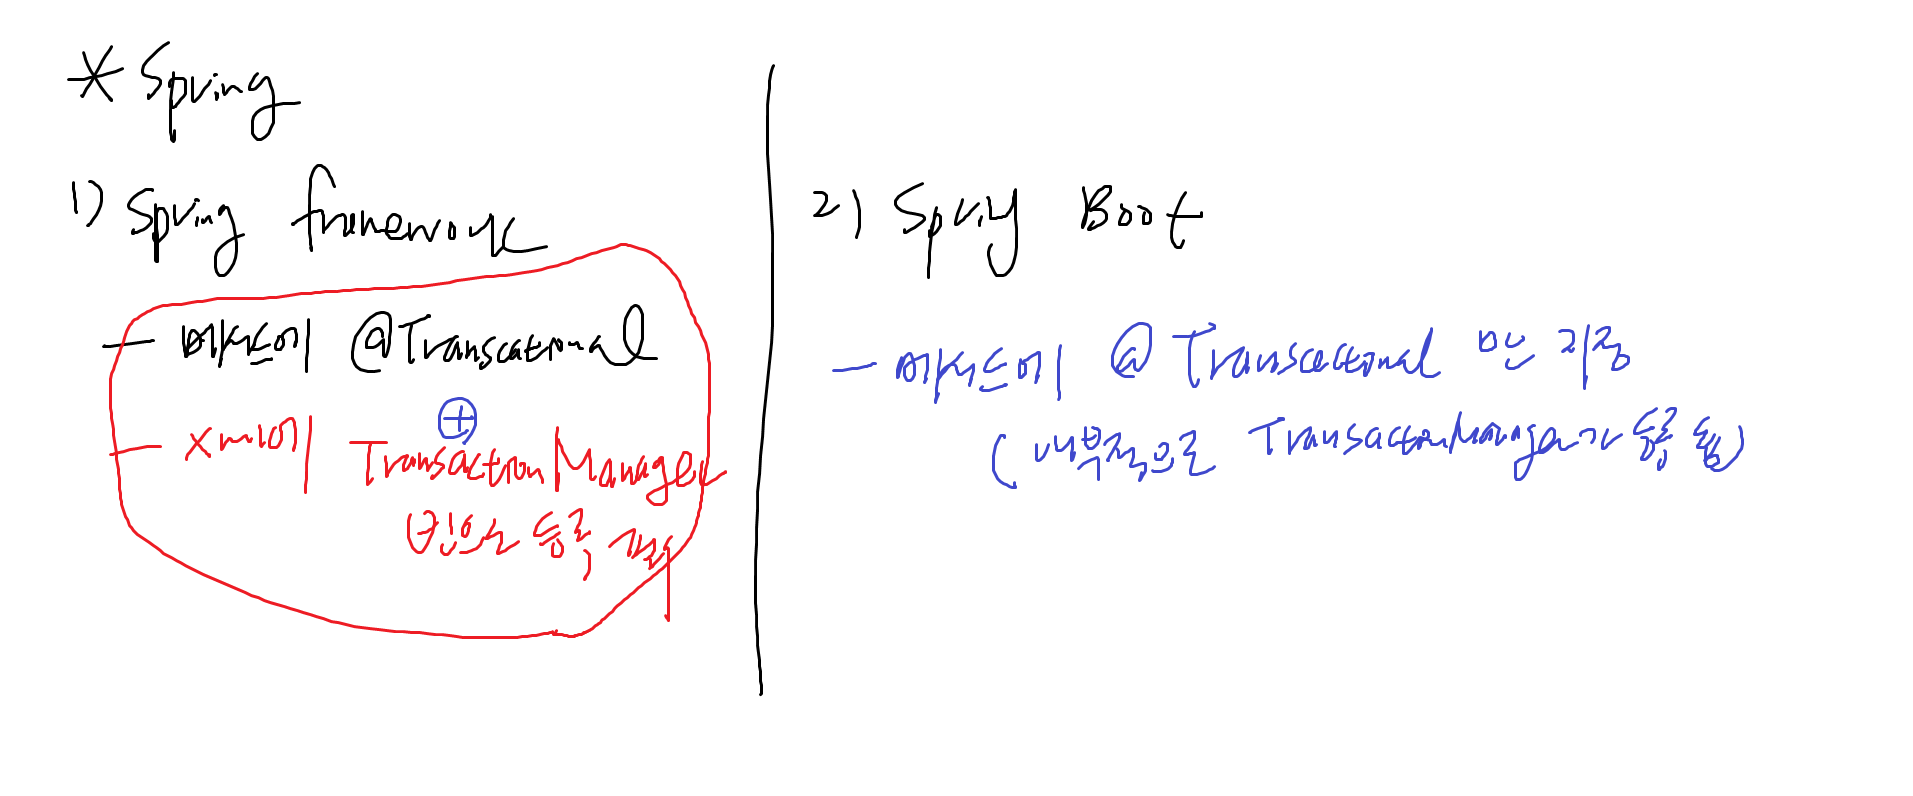 * Spring
1) Spring framework
- 메서드에 @Transcational
⊕
- xml에 TransactionManager
빈으로 등록 필수
2) Spring Boot
- 메서드에 @Transcactional 만 지정
(내부적으로 TransactionManager가 등록 됨)